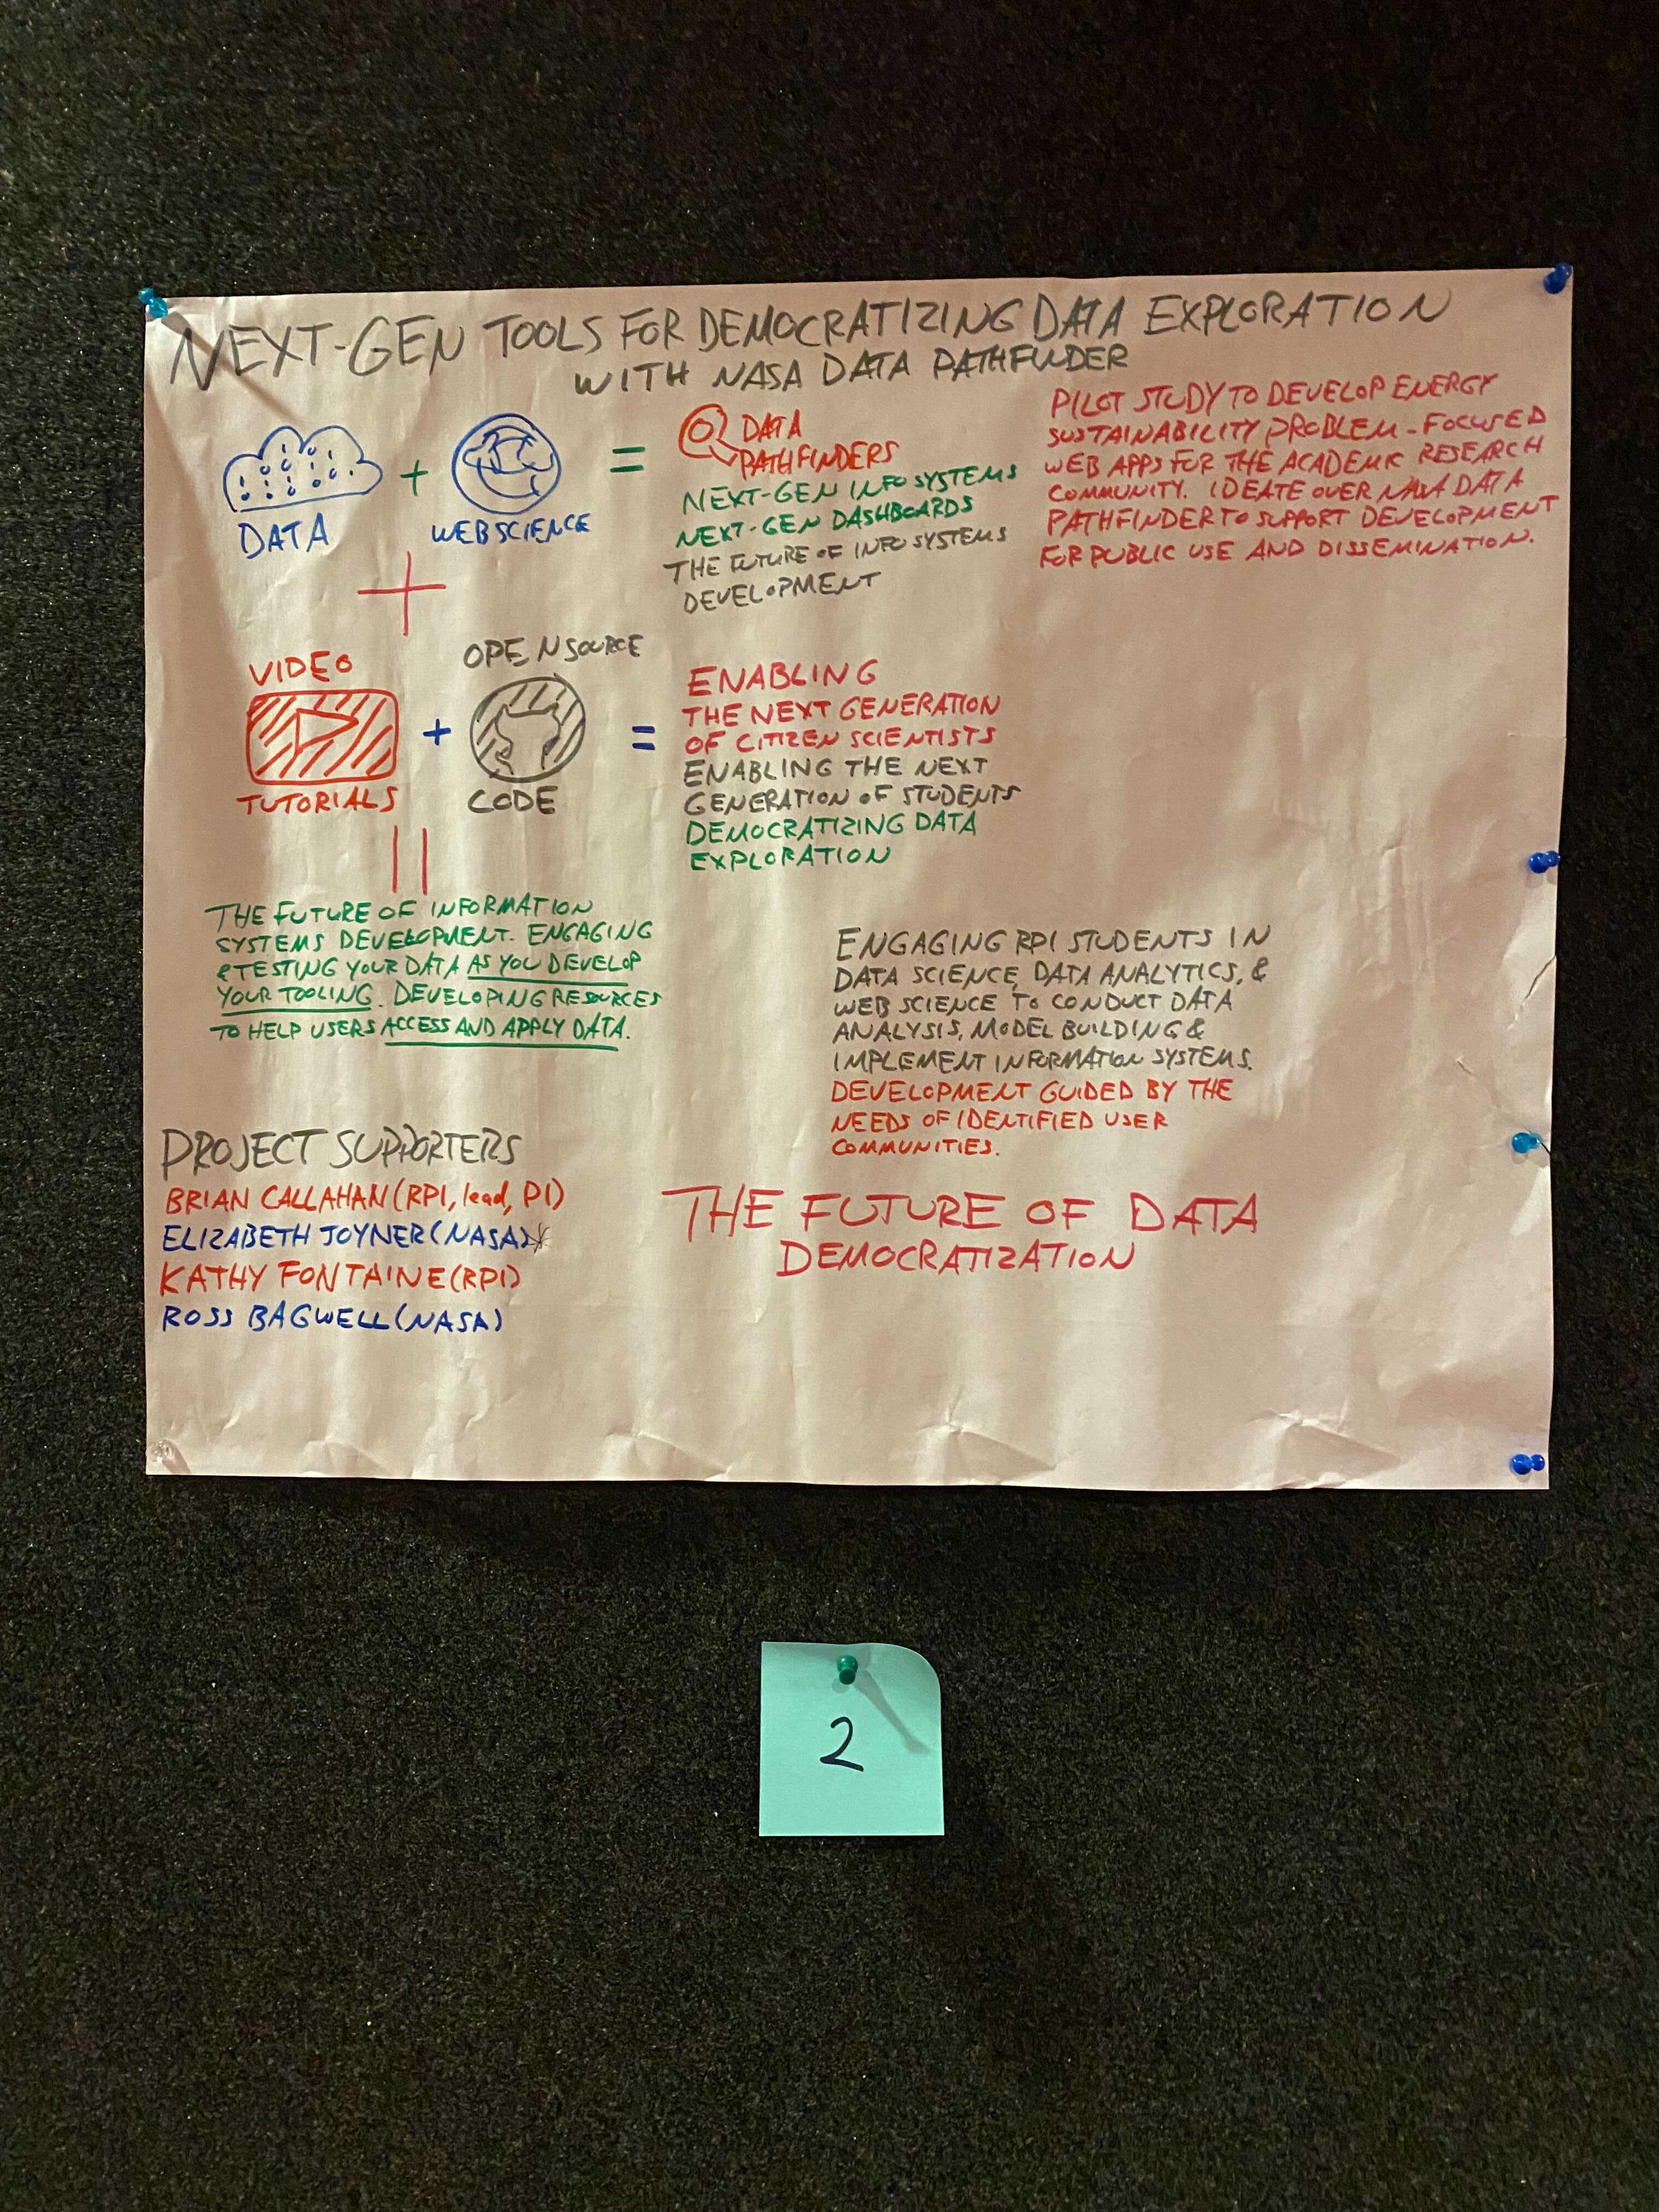 NEXT-GEN TOOLS FOR DEMOCRATIZING DATA EXPLORATION
WITH NASA DATA PATHFINDER
DATA
+
WEB SCIENCE
=
DATA
PATHFINDERS
NEXT-GEN INFO SYSTEMS
NEXT-GEN DASHBOARDS
THE FUTURE OF INFO SYSTEMS
DEVELOPMENT
PILOT STUDY TO DEVELOP ENERGY
SUSTAINABILITY PROBLEM-FOCUSED
WEB APPS FOR THE ACADEMIC RESEARCH
COMMUNITY. IDEATE OVER NASA DATA
PATHFINDER TO SUPPORT DEVELOPMENT
FOR PUBLIC USE AND DISSEMINATION.
+
VIDEO
TUTORIALS
+
OPEN SOURCE
CODE
=
ENABLING
THE NEXT GENERATION
OF CITIZEN SCIENTISTS
ENABLING THE NEXT
GENERATION OF STUDENTS
DEMOCRATIZING DATA
EXPLORATION
||
THE FUTURE OF INFORMATION
SYSTEMS DEVELOPMENT. ENGAGING
& TESTING YOUR DATA AS YOU DEVELOP
YOUR TOOLING. DEVELOPING RESOURCES
TO HELP USERS ACCESS AND APPLY DATA.
ENGAGING RPI STUDENTS IN
DATA SCIENCE, DATA ANALYTICS, &
WEB SCIENCE TO CONDUCT DATA
ANALYSIS, MODEL BUILDING &
IMPLEMENT INFORMATION SYSTEMS.
DEVELOPMENT GUIDED BY THE
NEEDS OF IDENTIFIED USER
COMMUNITIES.
PROJECT SUPPORTERS
BRIAN CALLAHAN (RPI, lead, PI)
ELIZABETH JOYNER (NASA)*
KATHY FONTAINE (RPI)
ROSS BAGWELL (NASA)
THE FUTURE OF DATA
DEMOCRATIZATION
2